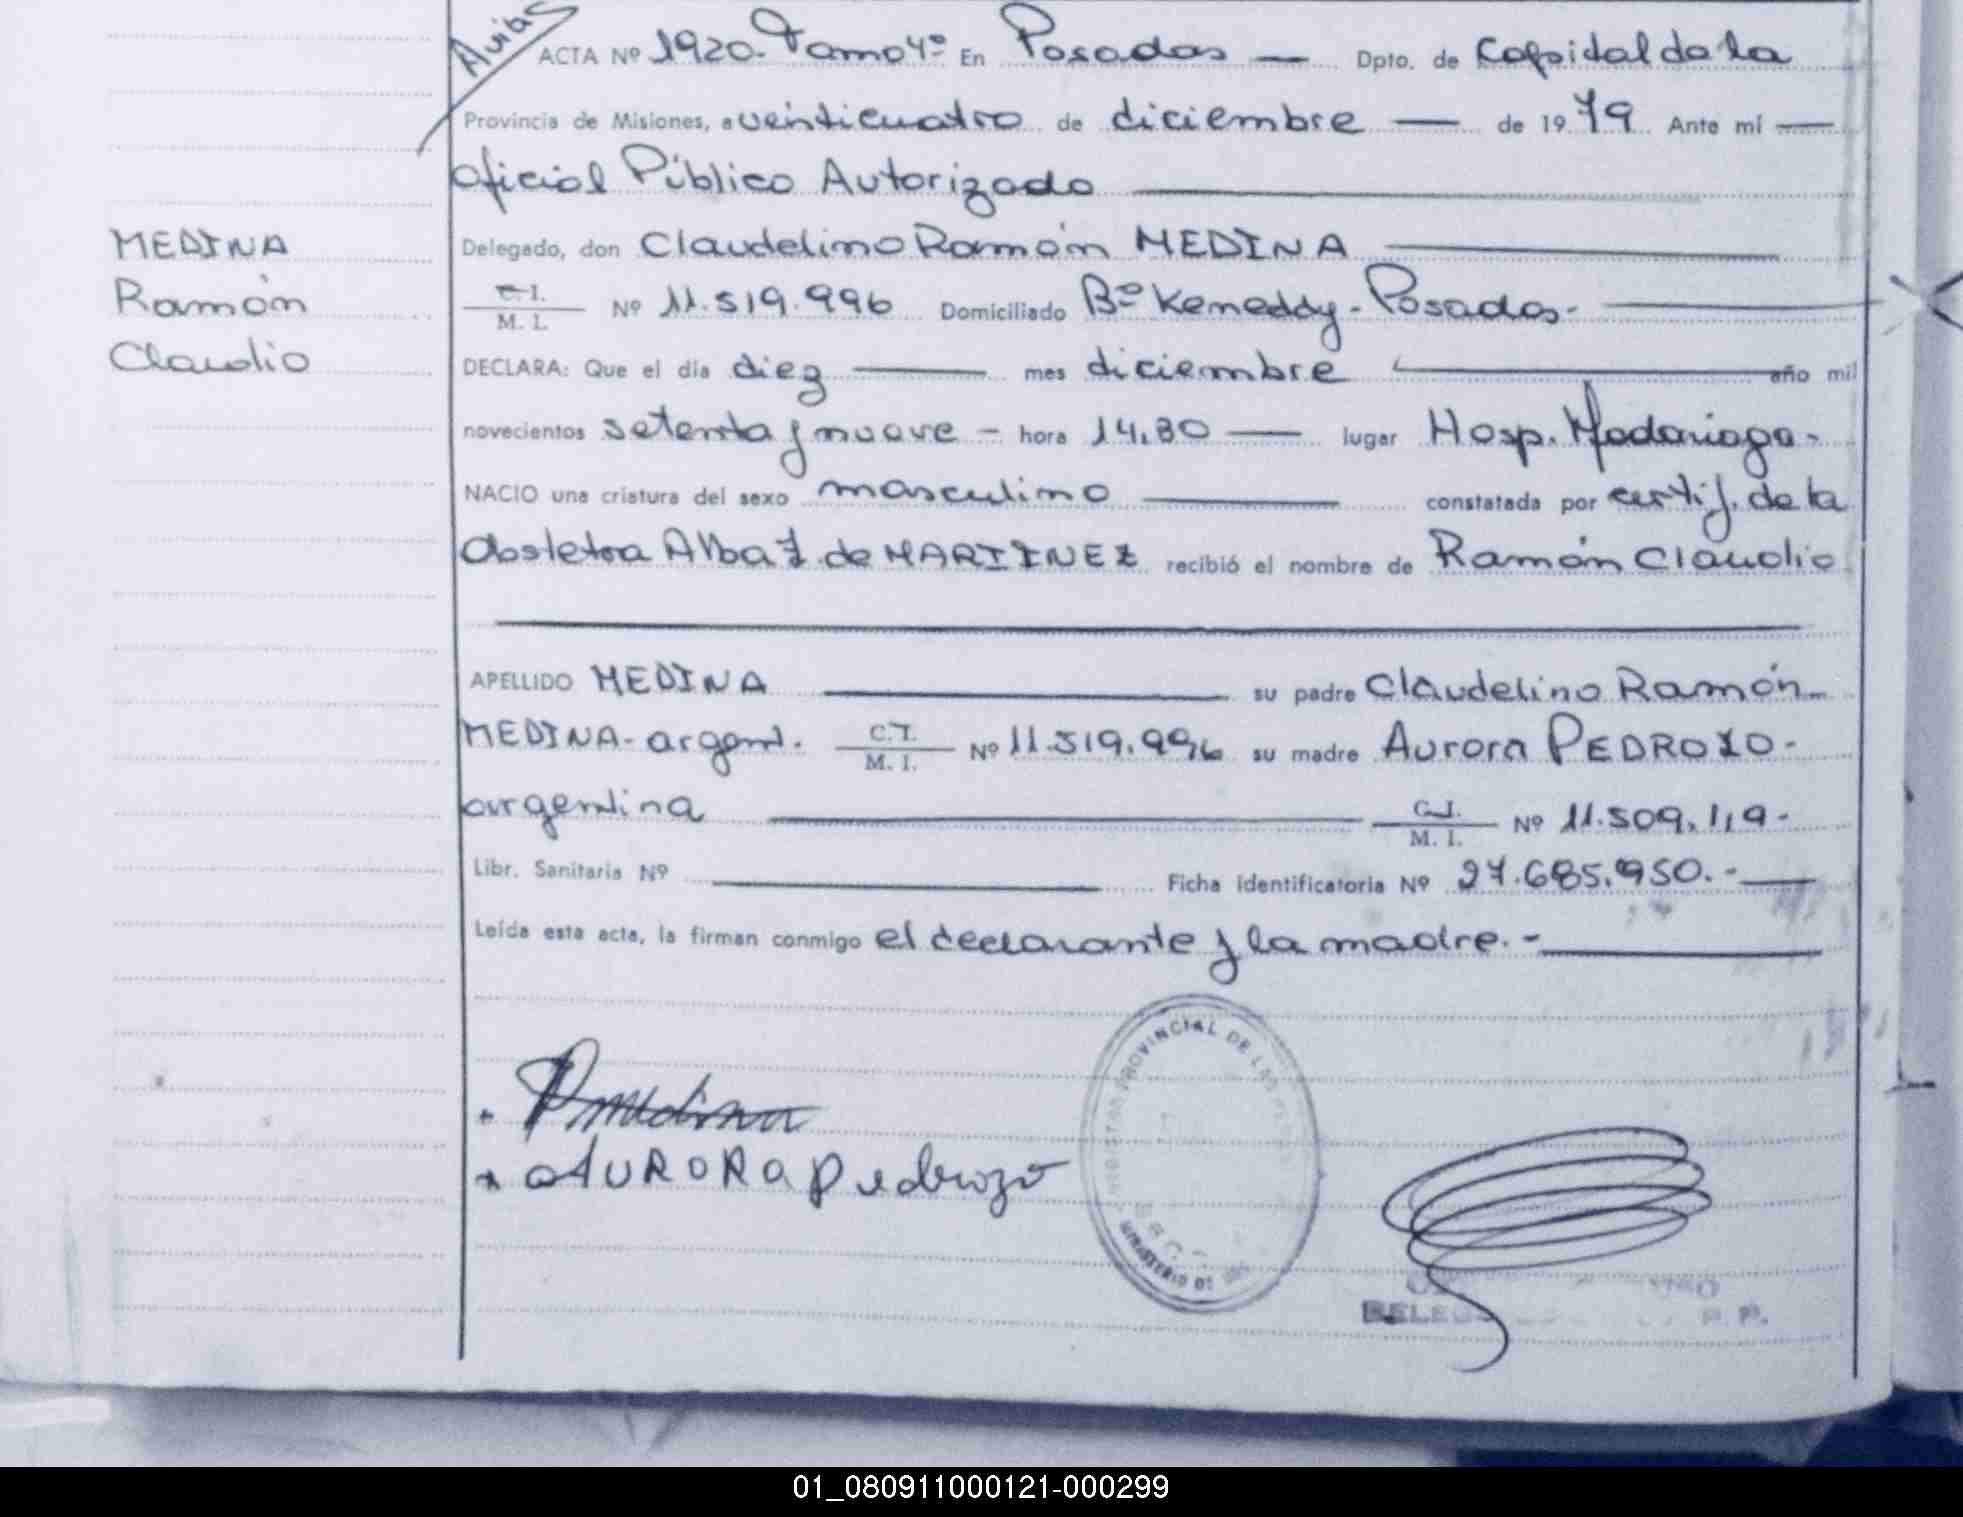 ACTA Nº 1920. Tomo 4º En Posadas — Dpto. de Capital de la
Provincia de Misiones, a veinticuatro de diciembre — de 1979 Ante mí —
Oficial Público Autorizado
MEDINA
Ramón
Claudio
Delegado, don Claudelino Ramón MEDINA
C.I.
M. I.
Nº 11.519.996 Domiciliado Bº Kenneddy - Posadas.-
DECLARA: Que el día diez — mes diciembre — año mil
novecientos setenta y nueve - hora 14,30 — lugar Hosp. Madariaga -
NACIO una criatura del sexo masculino — constatada por certif. de la
Obstetra Alba Z. de MARTINEZ recibió el nombre de Ramón Claudio
APELLIDO MEDINA — su padre Claudelino Ramón
MEDINA - argent. C.I.
M. I.
Nº 11.519.996 su madre Aurora PEDROZO -
argentina — C.I.
M. I.
Nº 11.509.119 -
Libr. Sanitaria Nº — Ficha Identificatoria Nº 27.685.950.-
Leída esta acta, la firman conmigo el declarante y la madre.-
Rmedina
AURORA Pedrozo
REGISTRO PROVINCIAL DE LAS
MINISTERIO DE
01_080911000121-000299